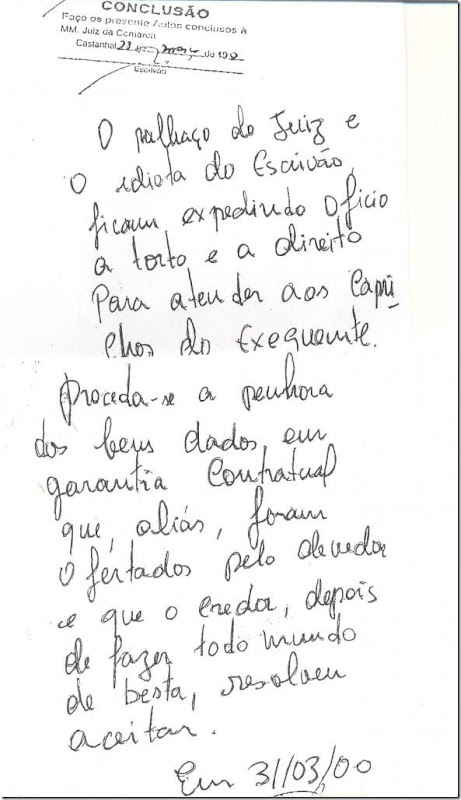 CONCLUSÃO
Faço os presente Autos conclusos à
MM. Juiz da Comarca
Castanhal 21 de março de
Escrivão
O palhaço do Juiz e
O idiota do Escrivão,
ficam expedindo Oficio
a torto e a direito
Para atender aos Capri_
chos do Exequente.
Proceda-se a penhora
dos bens dados, em
garantia Contratual
que, aliás, foram
Ofertados pelo devedor
e que o credor, depois
de fazer todo mundo
de besta, resolveu
aceitar.
Em 31/03/00